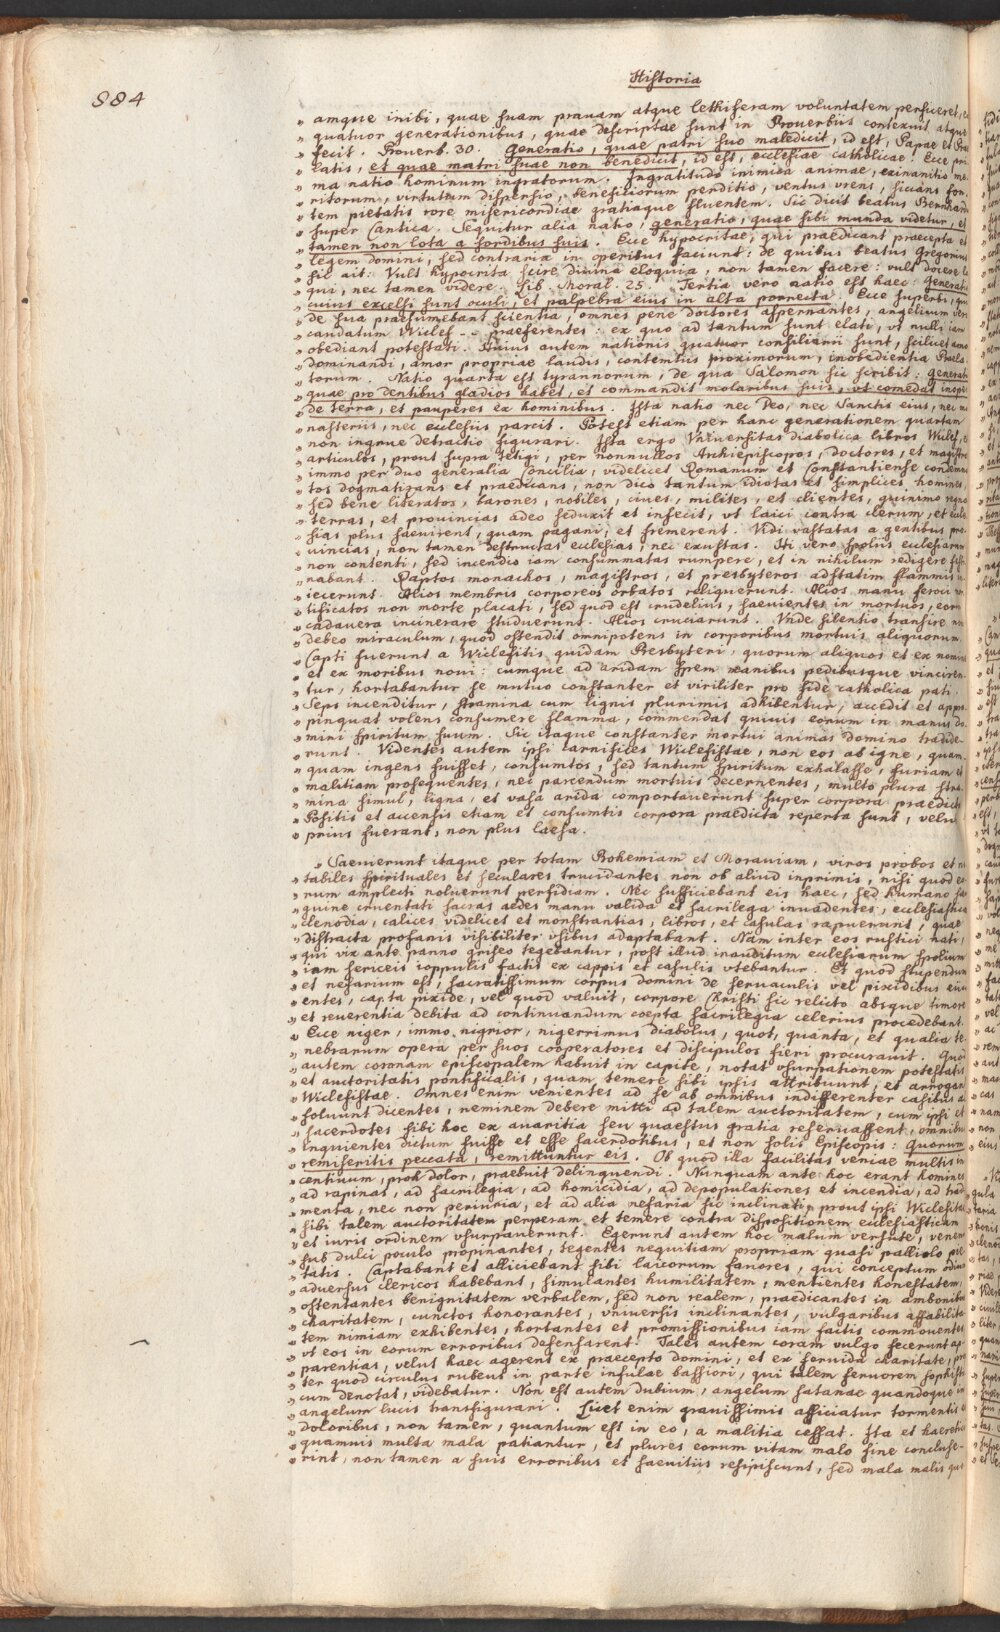 Historia
884
„ amque inibi, quae suam prauam atque lethiferam voluntatem perficeret, e
„ quatuor generationibus, quae descriptae sunt in Prouerbiis contexuit atque
„ fecit. Prouerb. 30. Generatio, quae patri suo maledicit, id est, Papae et Prae
„ latis, et quae matri suae non benedicit, id est, ecclesiae catholicae. Ecce pri
„ ma natio hominum ingratorum. Ingratitudo inimica animae, exinanitio me
„ ritorum, virtutum dispersio, beneficiorum perditio, ventus vrens, siccans fon
„ tem pietatis rore misericordiae gratiaque fluentem. Sic dicit beatus Bernhard
„ super Cantica. Sequitur alia natio, generatio, quae sibi munda videtur, et
„ tamen non lota a sordibus suis. Ecce hypocritae, qui praedicant praecepta et
„ legem domini, sed contraria in operibus faciunt: de quibus beatus Gregorius
„ sic ait: Vult hypocrita scire diuina eloquia, non tamen facere: vult docere lo
„ qui, nec tamen videre. lib. Moral. 25. Tertia vero natio est haec: generati
„ cuius excelsi sunt oculi, et palpebra eius in alta porrecta. Ecce superbi, qui
„ de sua praesumebant scientia, omnes pene doctores aspernantes, angelicum vero
„ caudatum Wiclef - - praeferentes: ex quo ad tantum sunt elati, vt nulli iam
„ obediant potestati. Huius autem nationis quatuor consiliarii sunt, scilicet amor
„ dominandi, amor propriae laudis, contemtus proximorum, inobedientia Praela
„ torum. Natio quarta est tyrannorum, de qua Salomon sic scribit: generati
„ quae pro dentibus gladios habet, et commandit molaribus suis, vt comedat inopes
„ de terra, et pauperes ex hominibus. Ista natio nec Deo, nec Sanctis eius, nec mo
„ nasteriis, nec ecclesiis parcit. Potest etiam per hanc generationem quartam
„ non ingrue detractio figurari. Ista ergo Vniuersitas diabolica libros Wiclef, et
„ articulos, prout supra tetigi, per nonnullos Archiepiscopos, doctores, et magistros
„ immo per duo generalia Concilia, videlicet Romanum et Constantiense condemna
„ tos dogmatizans et praedicans, non dico tantum idiotas et simplices homines,
„ sed bene literatos, barones, nobiles, ciues, milites, et clientes, quinimo regna
„ terras, et prouincias adeo seduxit et infecit, vt laici contra clerum, et eccle
„ sias plus saeuirent, quam pagani, et fremerent. Vidi vastatas a gentibus pro
„ uincias, non tamen destructas ecclesias, nec exustas. Hi vero spoliis ecclesiarum
„ non contenti, sed incendio iam consummatas rumpere, et in nihilum redigere festi
„ nabant. Raptos monachos, magistros, et presbyteros adstatim flammis in
„ iecerunt. Alios membris corporeos orbatos reliquerunt. Alios manu feroci mor
„ tificatos non morte placati, sed quod est crudelius, saeuientes in mortuos, eorum
„ cadauera incinerare studuerunt. Alios cruciarunt. Vnde silentio transire non
„ debeo miraculum, quod ostendit omnipotens in corporibus mortuis aliquorum.
„ Capti fuerunt a Wiclefitis quidam Presbyteri, quorum aliquos et ex nomine
„ et ex moribus noui: cumque ad aridam spem manibus pedibusque vinciren-
„ tur, hortabantur se mutuo constanter et viriliter pro fide catholica pati.
„ Seps incenditur, stramina cum lignis plurimis adhibentur, accedit et appro
„ pinquat volens consumere flamma, commendat quiuis eorum in manus do-
„ mini spiritum suum. Sic itaque constanter mortui animas Domino tradide-
„ runt. Videntes autem ipsi carnifices Wiclefistae, non eos ab igne, quam-
„ quam ingens fuisset, consumtos, sed tantum spiritum exhalasse, furiam et
„ malitiam prosequentes, nec parcendum mortuis decernentes, multo plura stra-
„ mina simul, ligna, et vasa arida comportauerunt super corpora praedicta.
„ Positis et accensis etiam et consumtis corpora praedicta reperta sunt, velut
„ prius fuerant, non plus laesa.
„ Saeuierunt itaque per totam Bohemiam et Morauiam, viros probos et no
„ tabiles spirituales et seculares trucidantes non ob aliud inprimis, nisi quod eo
„ rum amplecti noluerunt perfidiam. Nec sufficiebant eis haec, sed humano san
„ guine cruentati sacras aedes manu valida et sacrilega inuadentes, ecclesiastica
„ clenodia, calices videlicet et monstrantias, libros, et casulas rapuerunt, quae
„ distracta profanis visibiliter vsibus adaptabant. Nam inter eos rustici nati,
„ qui vix ante panno griseo tegebantur, post illud inauditum ecclesiarum spolium
„ iam sericeis ioppulis factis ex cappis et casulis vtebantur. Et quod stupendum
„ et nefarium est, sacratissimum corpus domini de seruaculis vel pixidibus eiici
„ entes, capta pixide, vel quod valuit, corpore Christi sic relicto absque timore
„ et reuerentia debita ad continuandum coepta sacrilegia celerius procedebant.
„ Ecce niger, immo nigrior, nigerrimus diabolus, quot, quanta, et qualia te-
„ nebrarum opera per suos cooperatores et discipulos fieri procurauit. Quod
„ autem coronam episcopalem habuit in capite, notat vsurpationem potestatis
„ et auctoritatis pontificalis, quam temere sibi ipsis attribuunt, et arrogan
„ Wiclefistae. Omnes enim venientes ad se ab omnibus indifferenter casibus ab
„ soluunt dicentes, neminem debere mitti ad talem auctoritatem, cum ipsi et
„ sacerdotes sibi hoc ex auaritia seu quaestus gratia reseruassent, omnibus
„ Inquientes dictum fuisse et esse sacerdotibus, et non solis Episcopis: quorum
„ remiseritis peccata, remittuntur eis. Ob quod illa facilitas veniae multis in
„ centiuum, proh dolor, praebuit delinquendi. Nunquam ante hoc erant homines
„ ad rapinas, ad sacrilegia, ad homicidia, ad depopulationes et incendia, ad trad
„ menta, nec non periuria, et ad alia nefaria sic inclinati, prout ipsi Wiclefitae
„ sibi talem auctoritatem perperam et temere contra dispositionem ecclesiasticam
„ et iuris ordinem vsurpauerunt. Egerunt autem hoc malum versute, venenum
„ sub dulci poculo propinantes, tegentes nequitiam propriam quasi palliolo pie
„ tatis. Captabant et alliciebant sibi laicorum fauores, qui conceptum odium
„ aduersus clericos habebant, simulantes humilitatem, mentientes honestatem,
„ ostentantes benignitatem verbalem, sed non realem, praedicantes in ambonibus
„ charitatem, cunctos honorantes, vniuersis inclinantes, vulgaribus affabilita
„ tem nimiam exhibentes, hortantes et promissionibus iam factis commouentes
„ vt eos in eorum erroribus defensarent. Tales autem coram vulgo fecerunt ap-
„ parentias, velut haec agerent ex praecepto domini, et ex feruida charitate, pro
„ ter quod circulus rubeus in parte insulae bassiori, qui talem feruorem sophisti
„ cum denotat, videbatur. Non est autem dubium, angelum satanae quandoque in
„ angelum lucis transfigurari. Licet enim grauissimis afficiatur tormentis et
„ doloribus, non tamen, quantum est in eo, a malitia cessat. Ita et haeretici
„ quamuis multa mala patiantur, et plures eorum vitam malo fine concluse-
„ rint, non tamen a suis erroribus et saeuitiis resipiscunt, sed mala malis quo